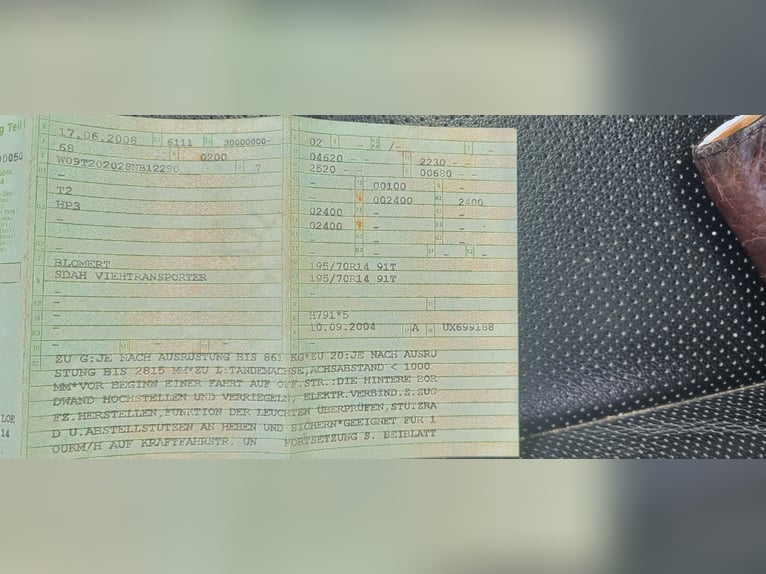 g Teil
0050
17.06.2008 6111 30000000-
68 0200
W09T20202SNB12290 7
-
T2
HP3
-
-
-
BLOMERT
SDAH VIEHTRANSPORTER
-
-
-
-
- -
02 - /- -
04620 - 2230 -
2520 - 00680 -
- 00100 -
- 002400 2400
02400 - -
02400 - -
- - - -
-
195/70R14 91T
195/70R14 91T
-
-
H791*5
10.09.2004 A UX699188
-
ZU G:JE NACH AUSRÜSTUNG BIS 861 KG*ZU 20:JE NACH AUSRÜ
STUNG BIS 2815 MM*ZU L:TANDEMACHSE,ACHSABSTAND < 1000
MM*VOR BEGINN EINER FAHRT AUF ÖFF.STR.:DIE HINTERE BOR
DWAND HOCHSTELLEN UND VERRIEGELN, ELEKTR.VERBIND.Z.ZUG
FZ.HERSTELLEN,FUNKTION DER LEUCHTEN ÜBERPRÜFEN,STÜTZRA
D U.ABSTELLSTÜTZEN AN HEBEN UND SICHERN*GEEIGNET FÜR 1
00KM/H AUF KRAFTFAHRSTR. UN FORTSETZUNG S. BEIBLATT
LOE
14